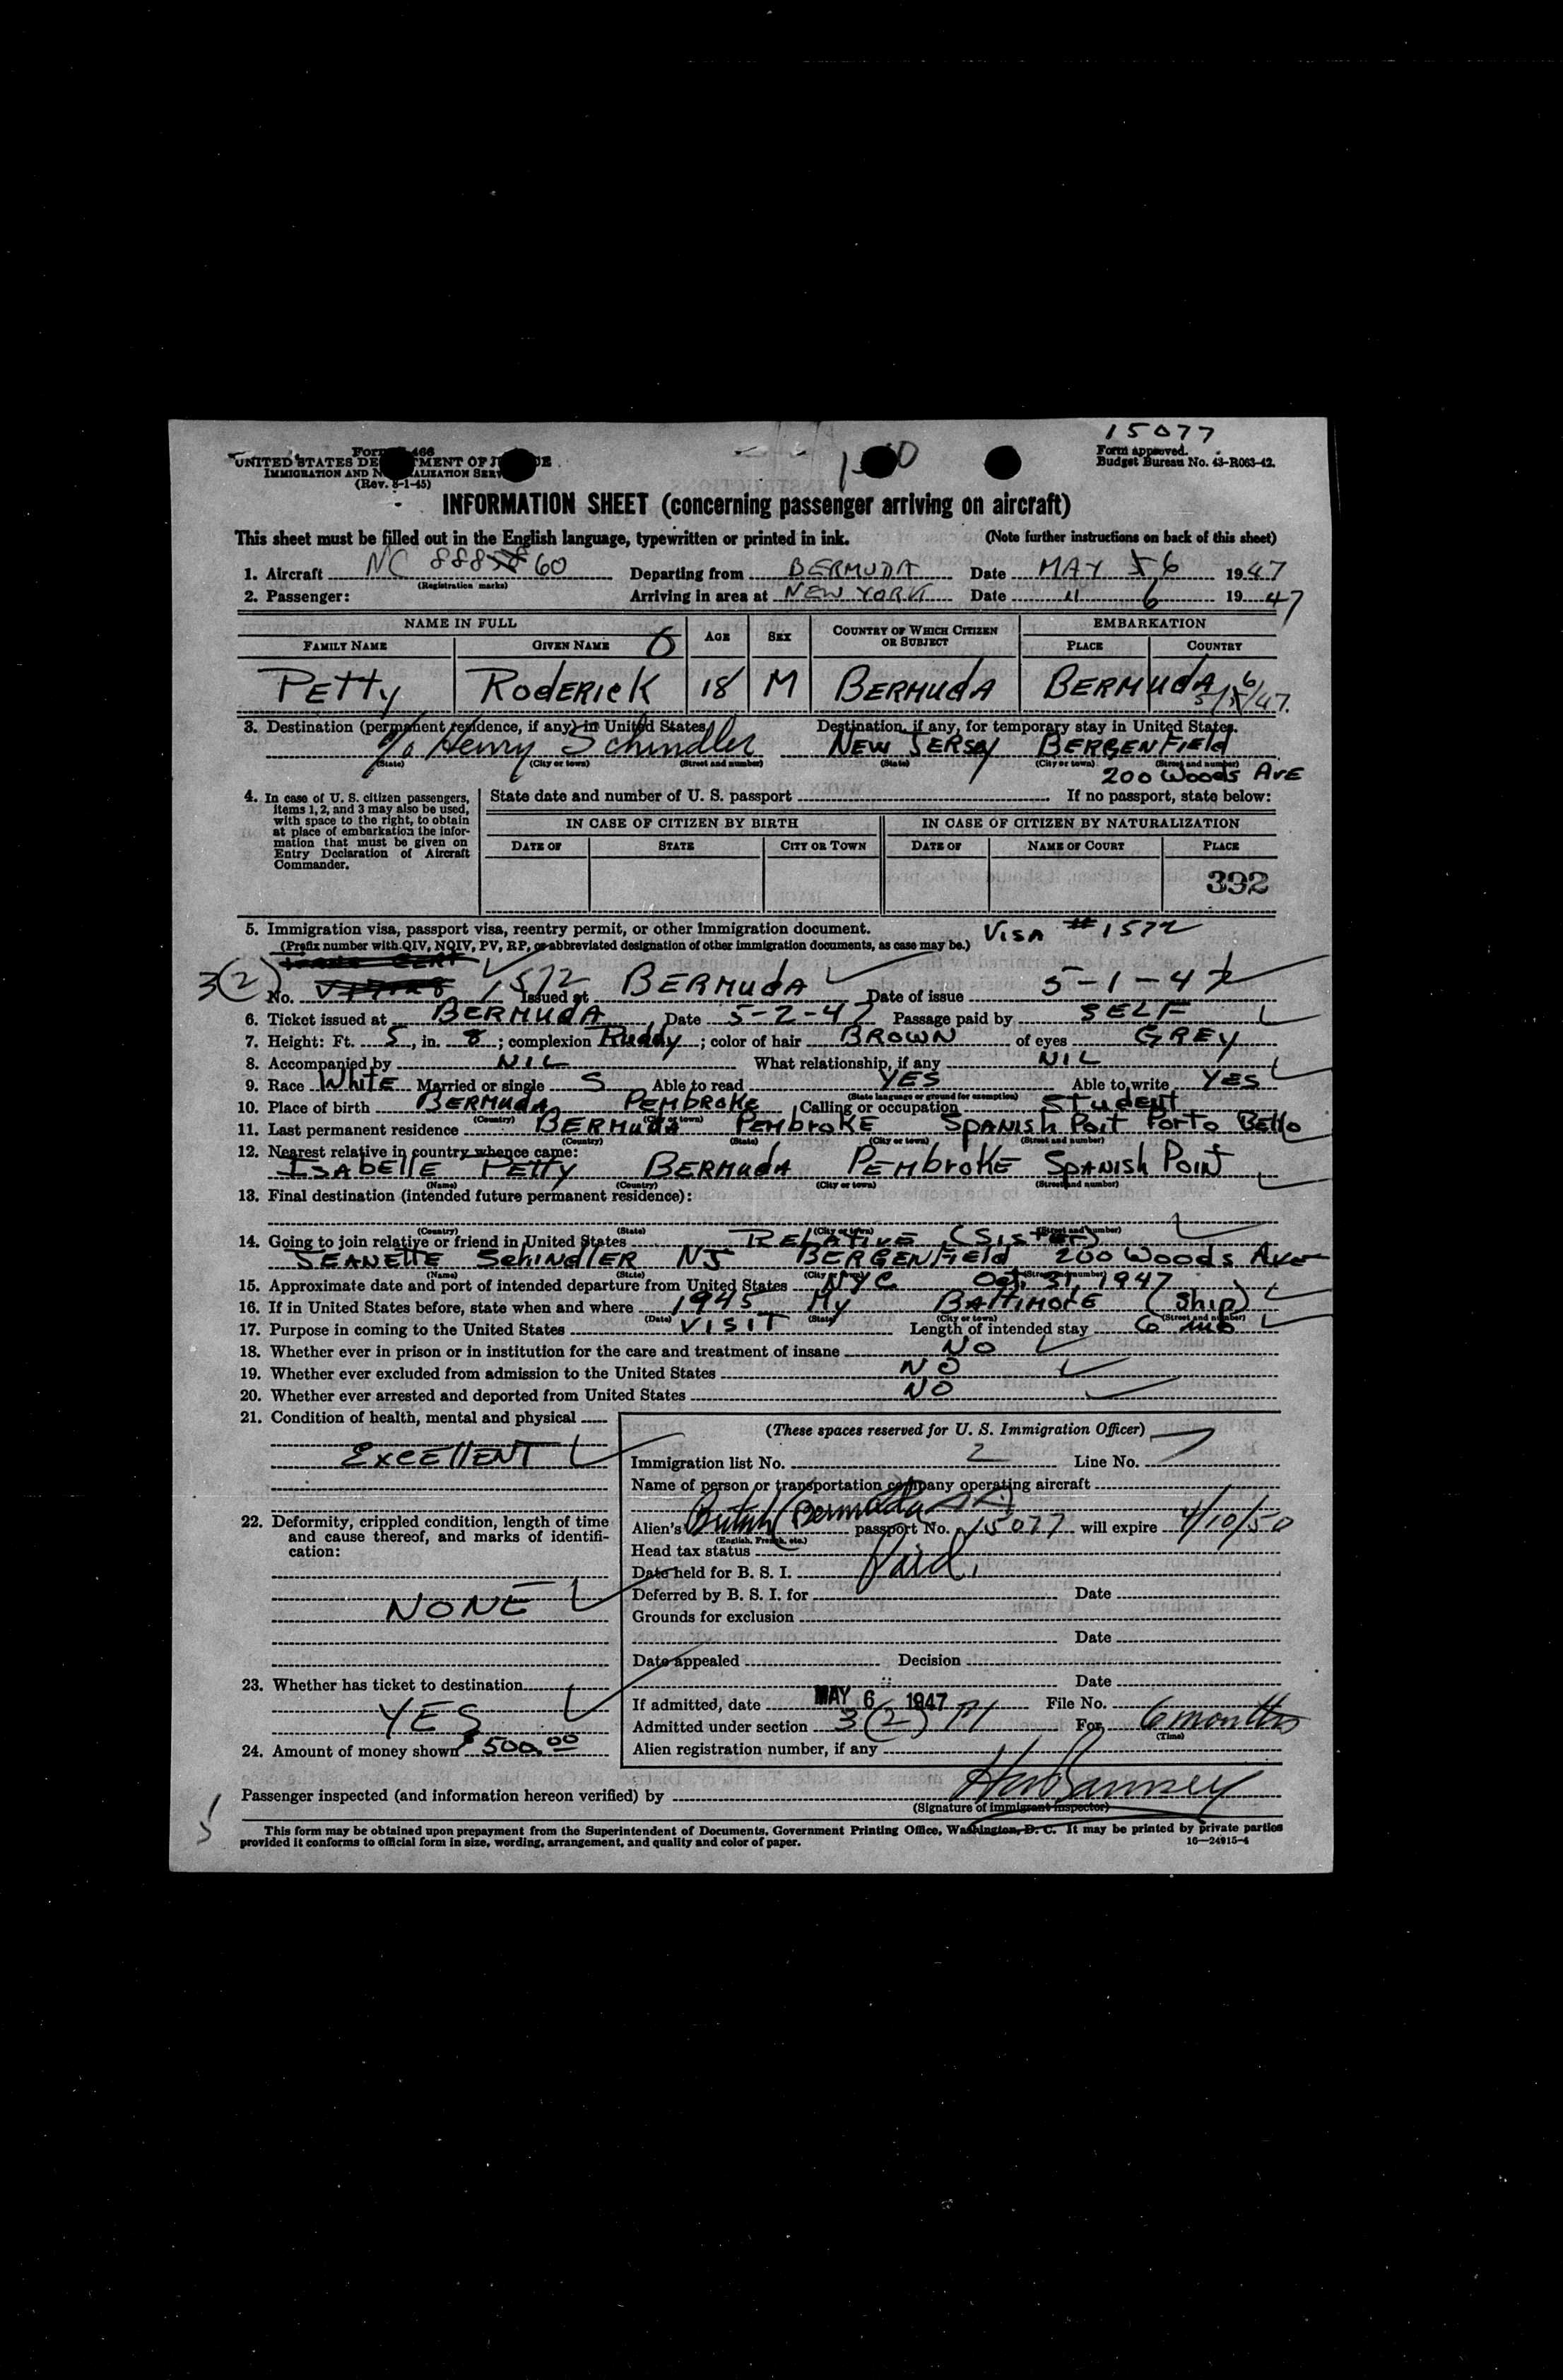 15077
Form 466
UNITED STATES DE MENT OF J
IMMIGRATION AND N ALIZATION SERV
(Rev. 8-1-45)
Form approved.
Budget Bureau No. 43-R063-42.
INFORMATION SHEET (concerning passenger arriving on aircraft)
This sheet must be filled out in the English language, typewritten or printed in ink. (Note further instructions on back of this sheet)
1. Aircraft NC 888 60 Departing from BERMUDA Date MAY 6 1947
(Registration marks)
2. Passenger: Arriving in area at NEW YORK Date 11 6 1947
NAME IN FULL AGE SEX COUNTRY OF WHICH CITIZEN OR SUBJECT EMBARKATION
FAMILY NAME GIVEN NAME 6 PLACE COUNTRY
PETTY RODERICK 18 M BERMUDA BERMUDA 5/6/47.
3. Destination (permanent residence, if any) in United States Destination, if any, for temporary stay in United States.
c/o Henry Schindler NEW JERSEY BERGENFIEld
(State) (City or town) (Street and number) (State) (City or town) (Street and number)
200 Woods AvE
4. In case of U. S. citizen passengers, items 1, 2, and 3 may also be used, with space to the right, to obtain at place of embarkation the information that must be given on Entry Declaration of Aircraft Commander.
State date and number of U. S. passport If no passport, state below:
IN CASE OF CITIZEN BY BIRTH IN CASE OF CITIZEN BY NATURALIZATION
DATE OF STATE CITY OR TOWN DATE OF NAME OF COURT PLACE
392
5. Immigration visa, passport visa, reentry permit, or other immigration document. VISA #1572
(Prefix number with QIV, NQIV, PV, RP, or abbreviated designation of other immigration documents, as case may be.)
3(2) No. 1572 Issued at BERMUDA Date of issue 5-1-47
6. Ticket issued at BERMUDA Date 5-2-47 Passage paid by SELF
7. Height: Ft. 5, in. 8; complexion Ruddy; color of hair BROWN of eyes GREY
8. Accompanied by NIL What relationship, if any NIL
9. Race WhiTE Married or single S Able to read YES Able to write YES
(State language or ground for exemption)
10. Place of birth BERMUDA PEMbROKE Calling or occupation STudENT
(Country) (City or town)
11. Last permanent residence BERMUDA PEMbroKE SPANISH Point Porto Bello
(Country) (State) (City or town) (Street and number)
12. Nearest relative in country whence came:
ISABELLE PETTY BERMUDA PEMbroKE SPANISH POINT
(Name) (Country) (City or town) (Street and number)
13. Final destination (intended future permanent residence):
(Country) (State) (City or town) (Street and number)
14. Going to join relative or friend in United States RELATIVE (SISTER)
JEANETTE SCHINDLER NJ BERGENFIEld 200 Woods Ave
(Name) (State) (City or town) (Street and number)
15. Approximate date and port of intended departure from United States NYC Oct. 31, 1947
16. If in United States before, state when and where 1945 BALTIMORE (Ship)
(Date) (State) (City or town) (Street and number)
17. Purpose in coming to the United States VISIT Length of intended stay 6 mo
18. Whether ever in prison or in institution for the care and treatment of insane NO
19. Whether ever excluded from admission to the United States NO
20. Whether ever arrested and deported from United States NO
21. Condition of health, mental and physical
EXCELLENT
22. Deformity, crippled condition, length of time and cause thereof, and marks of identification:
NONE
23. Whether has ticket to destination
YES
24. Amount of money shown $500.00
(These spaces reserved for U. S. Immigration Officer)
Immigration list No. 2 Line No. 7
Name of person or transportation company operating aircraft
Alien's British (Bermuda) passport No. 15077 will expire 4/10/50
(English, French, etc.)
Head tax status Paid.
Date held for B. S. I.
Deferred by B. S. I. for Date
Grounds for exclusion
Date
Date appealed Decision
Date
If admitted, date MAY 6 1947 File No.
Admitted under section 3(2) For 6 months
(Time)
Alien registration number, if any
Passenger inspected (and information hereon verified) by
(Signature of immigrant inspector)
This form may be obtained upon prepayment from the Superintendent of Documents, Government Printing Office, Washington, D. C. It may be printed by private parties
provided it conforms to official form in size, wording, arrangement, and quality and color of paper. 16—24915-4